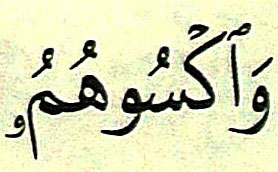 وَٱكۡسُوهُمُۥ